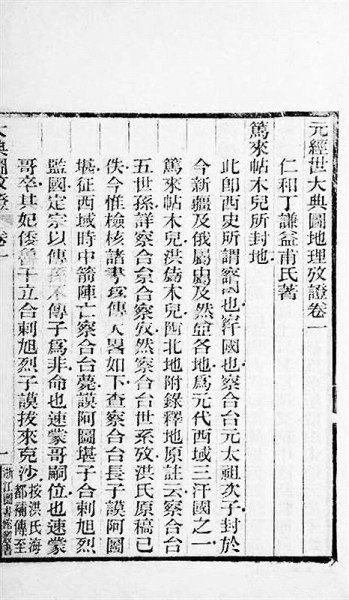 元經世大典圖地理攷證卷一
仁和丁謙益甫氏著
篤來帖木兒所封地
此即西史所謂察罕國也察合台元太祖次子封於
今新疆及俄屬各地為元代西域三汗國之一
篤來帖木兒洪鈞西北地附錄釋地原註云察合台
五世孫詳察合台系攷然察合台世系攷洪氏原稿已
佚今惟檢核諸書為傳如下查察合台長子謨阿圖
堪征西域時中箭陣亡察合台薨謨阿圖堪子合剌旭烈
監國定宗以傳孫不傳子為非命也速蒙哥嗣位也速蒙
哥卒其妃倭魯干立合剌旭烈子謨拔來克沙
按洪氏海都補傳至
大典圖攷證
卷一
一
浙江圖書館叢書